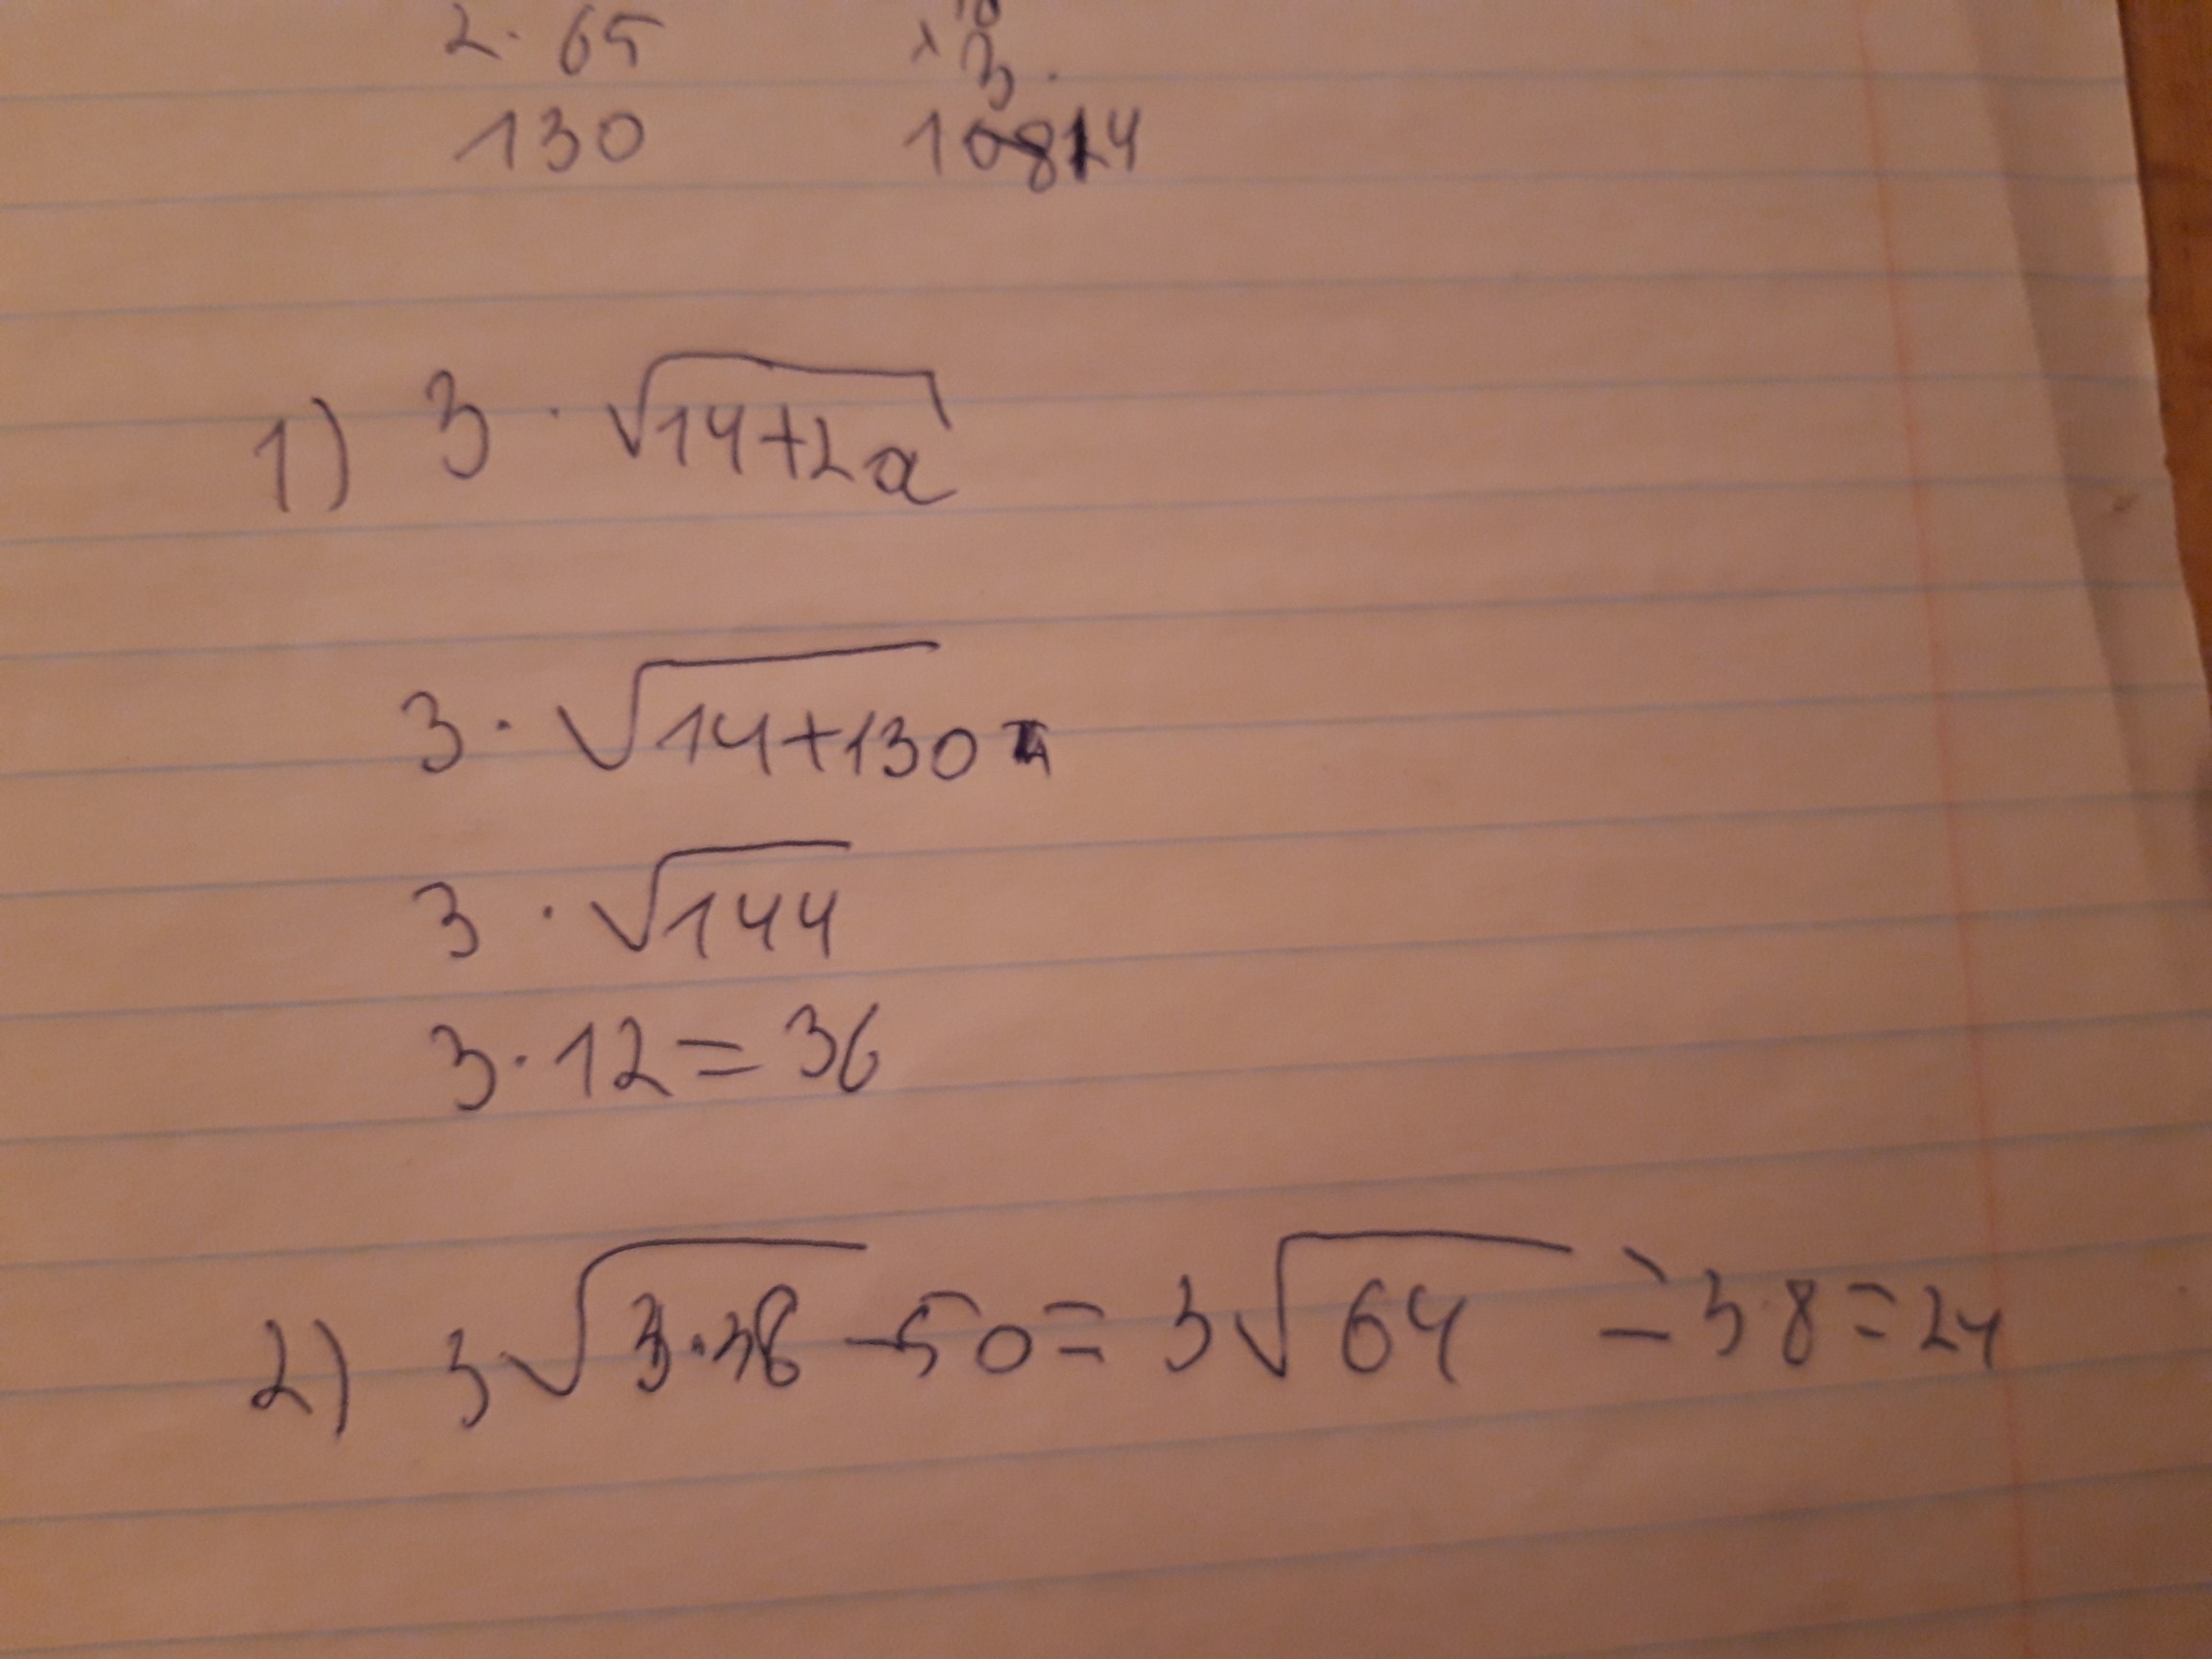 2. 65
3.
130 10824
1) 3 · √14+2a
3 · √14+130
3 · √144
3 · 12 = 36
2) 3√3·38 -50 = 3√64 = 3 8 = 24